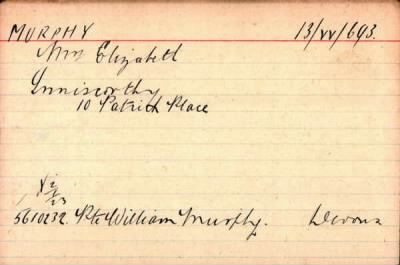 MURPHY 13/VV/693.
Mrs Elizabeth
Enniscorthy
10 Patrick Place
5610232. Pte William Murphy. Devons